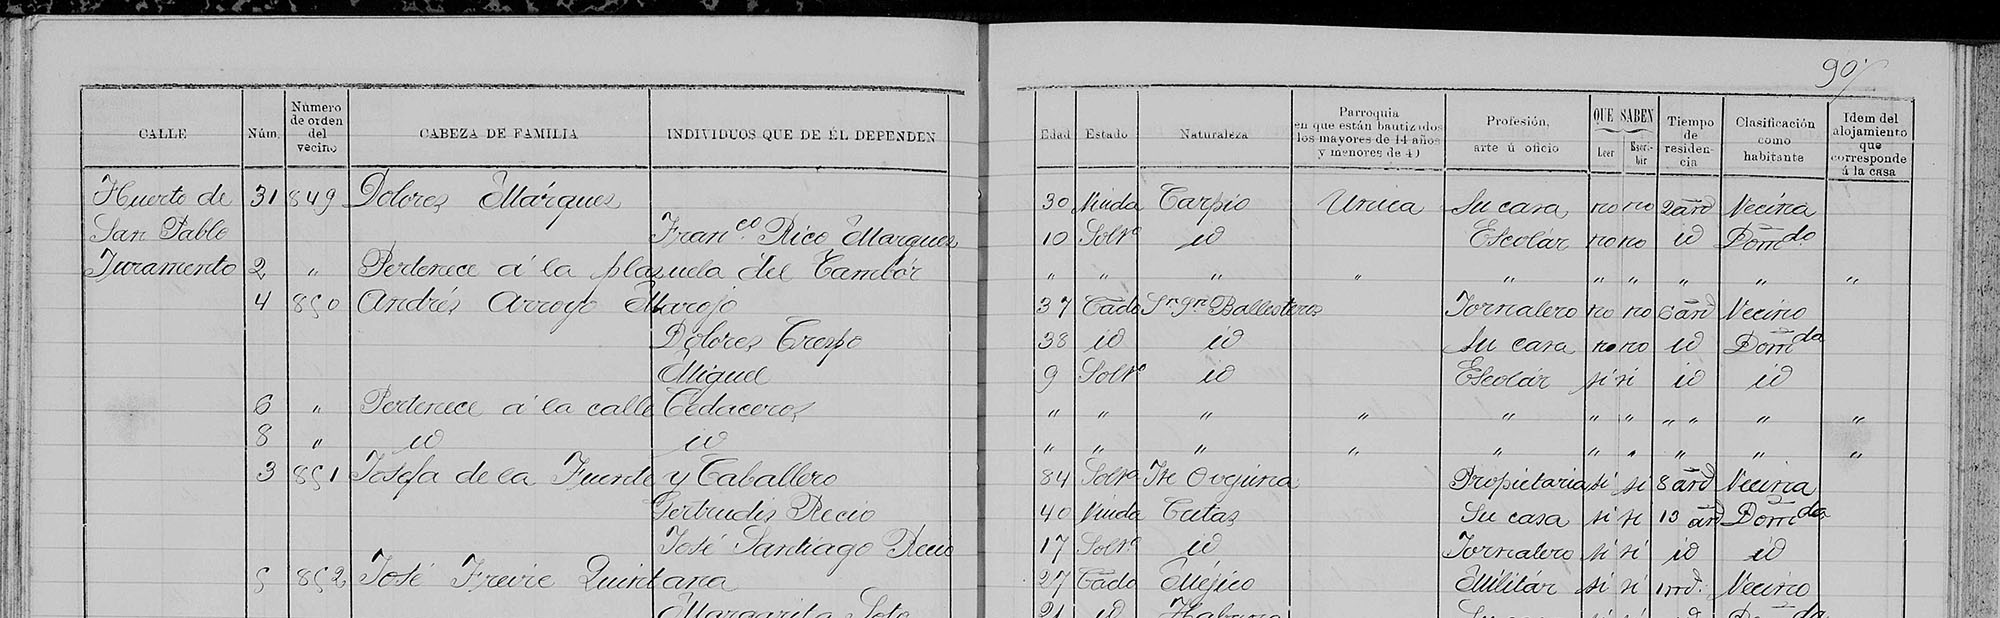 90
CALLE Núm. Número de orden del vecino CABEZA DE FAMILIA INDIVIDUOS QUE DE ÉL DEPENDEN Edad Estado Naturaleza Parroquia en que están bautizados los mayores de 14 años y menores de 40 Profesión, arte ú oficio QUE SABEN Leer Escribir Tiempo de residencia Clasificación como habitante Idem del alojamiento que corresponde á la casa
Huerto de 31 849 Dolores Márques 30 Viuda Carpio Unica Su casa no no 2 añs Vecina
San Pablo Franco. Rico Marques 10 Solto id Escolár no no id Domdo
Juramento 2 " Pertenece á la plazuela del Tambór " " " " " " " " " "
4 850 Andrés Arroyo Marojo 37 Cado Ballesteros Jornalero no no 6 añs Vecino
Dolores Crespo 38 id id Su casa no no id Domda
Miguel 9 Solto id Escolár si si id id
6 " Pertenece á la calle Cedaceros " " " " " " " " " " "
8 " id id " " " " " " " " " "
3 851 Josefa de la Fuente y Caballero 84 Solta Ovejuna Propietaria si si 8 añs Vecina
Gertrudis Recio 40 Viuda Su casa si si 13 añs Domda
José Santiago Recio 17 Solto id Jornalero si si id id
5 852 José Freire Quintana 27 Cado Méjico Militár si si Vecino
Margarita Soto 21 id Habana